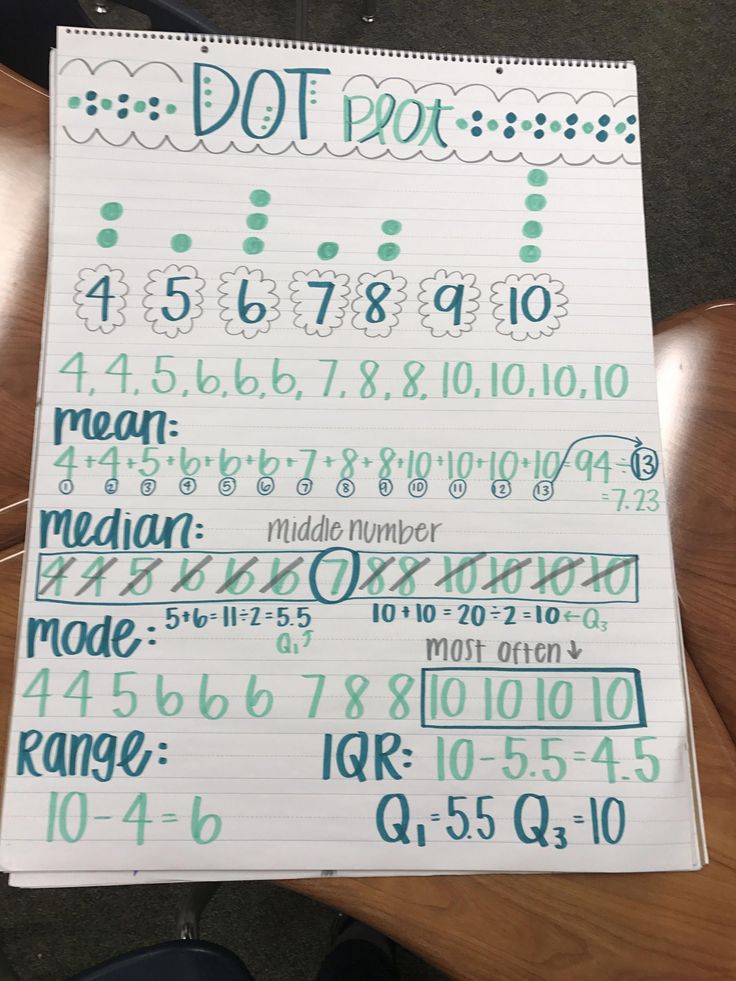 DOT Plot
4 5 6 7 8 9 10
4, 4, 5, 6, 6, 6, 7, 8, 8, 10, 10, 10, 10
mean:
4+4+5+6+6+6+7+8+8+10+10+10+10=94÷13
1 2 3 4 5 6 7 8 9 10 11 12 13
=7.23
median: middle number
4 4 5 6 6 6 7 8 8 10 10 10 10
5+6=11÷2=5.5 10+10=20÷2=10←Q3
Q1↑
mode: most often↓
4 4 5 6 6 6 7 8 8 10 10 10 10
Range: IQR: 10-5.5=4.5
10-4=6 Q1=5.5 Q3=10